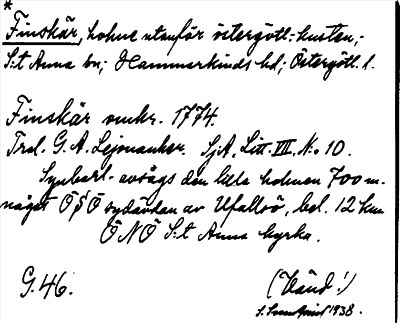 *
Finskär, holme utanför östergötl. kusten,
S:t Anna sn; Hammarkinds hd; Östergötl. l.
Finskär omkr. 1774.
Trol. G. A. Lejonanker. SjA, Litt. VII, No 10.
Synbarl. avsågs den lilla holmen 700 m.
något ÖSÖ sydändan av Ufallsö, bel. 12 km
ÖNÖ S:t Anna kyrka.
G. 46. (Vänd!)
1938.